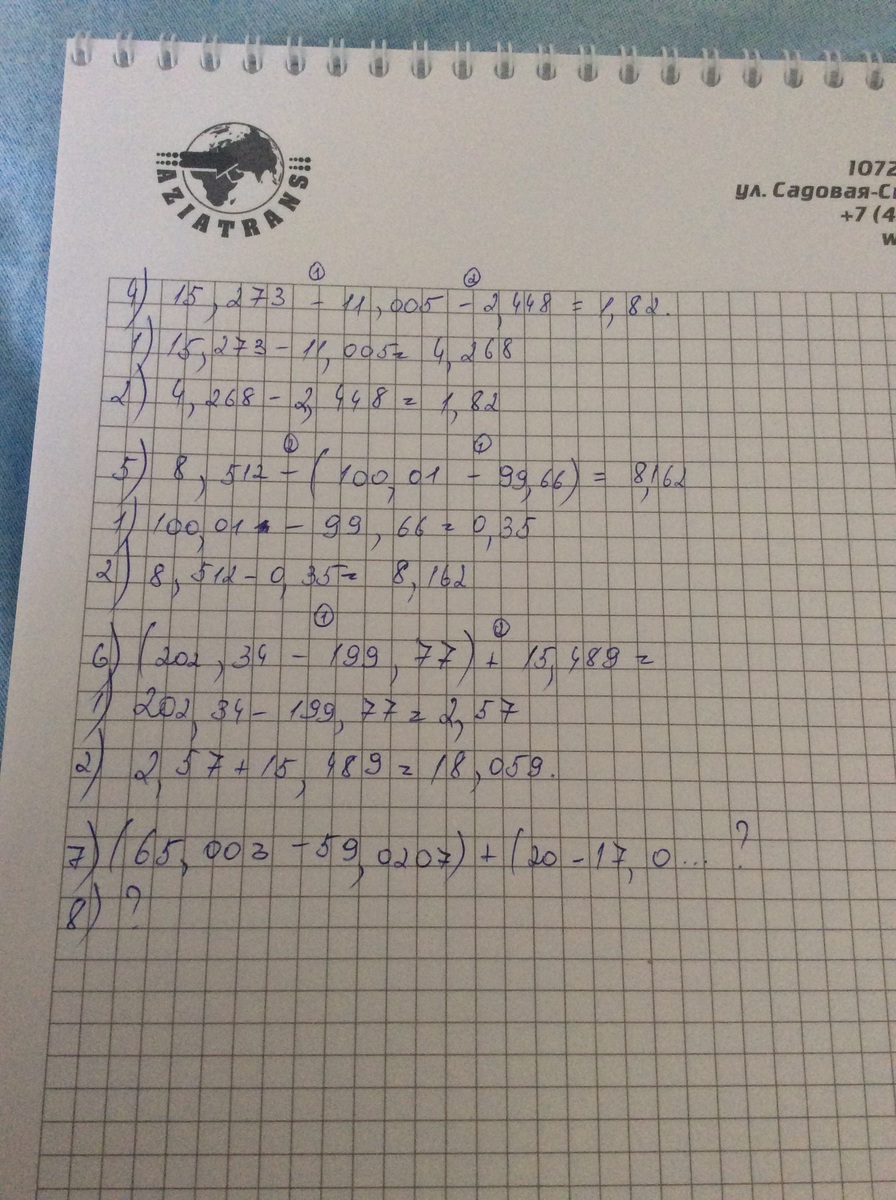 AZIATRANS
1072
ул. Садовая-С
+7 (4
w
① ②
4) 15,273 - 11,005 - 2,448 = 1,82.
1) 15,273 - 11,005 = 4,268
2) 4,268 - 2,448 = 1,82
② ①
5) 8,512 - (100,01 - 99,66) = 8,162
1) 100,01 - 99,66 = 0,35
2) 8,512 - 0,35 = 8,162
① ②
6) (202,34 - 199,77) + 15,489 =
1) 202,34 - 199,77 = 2,57
2) 2,57 + 15,489 = 18,059.
7) (65,003 - 59,0207) + (20 - 17,0... ?
8) ?